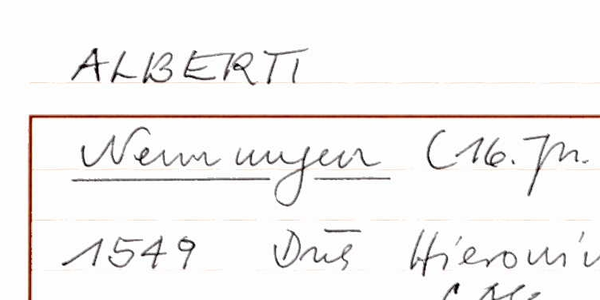 ALBERTI
Nennungen (16. Jh.
1549 Dn̄s Hieroni